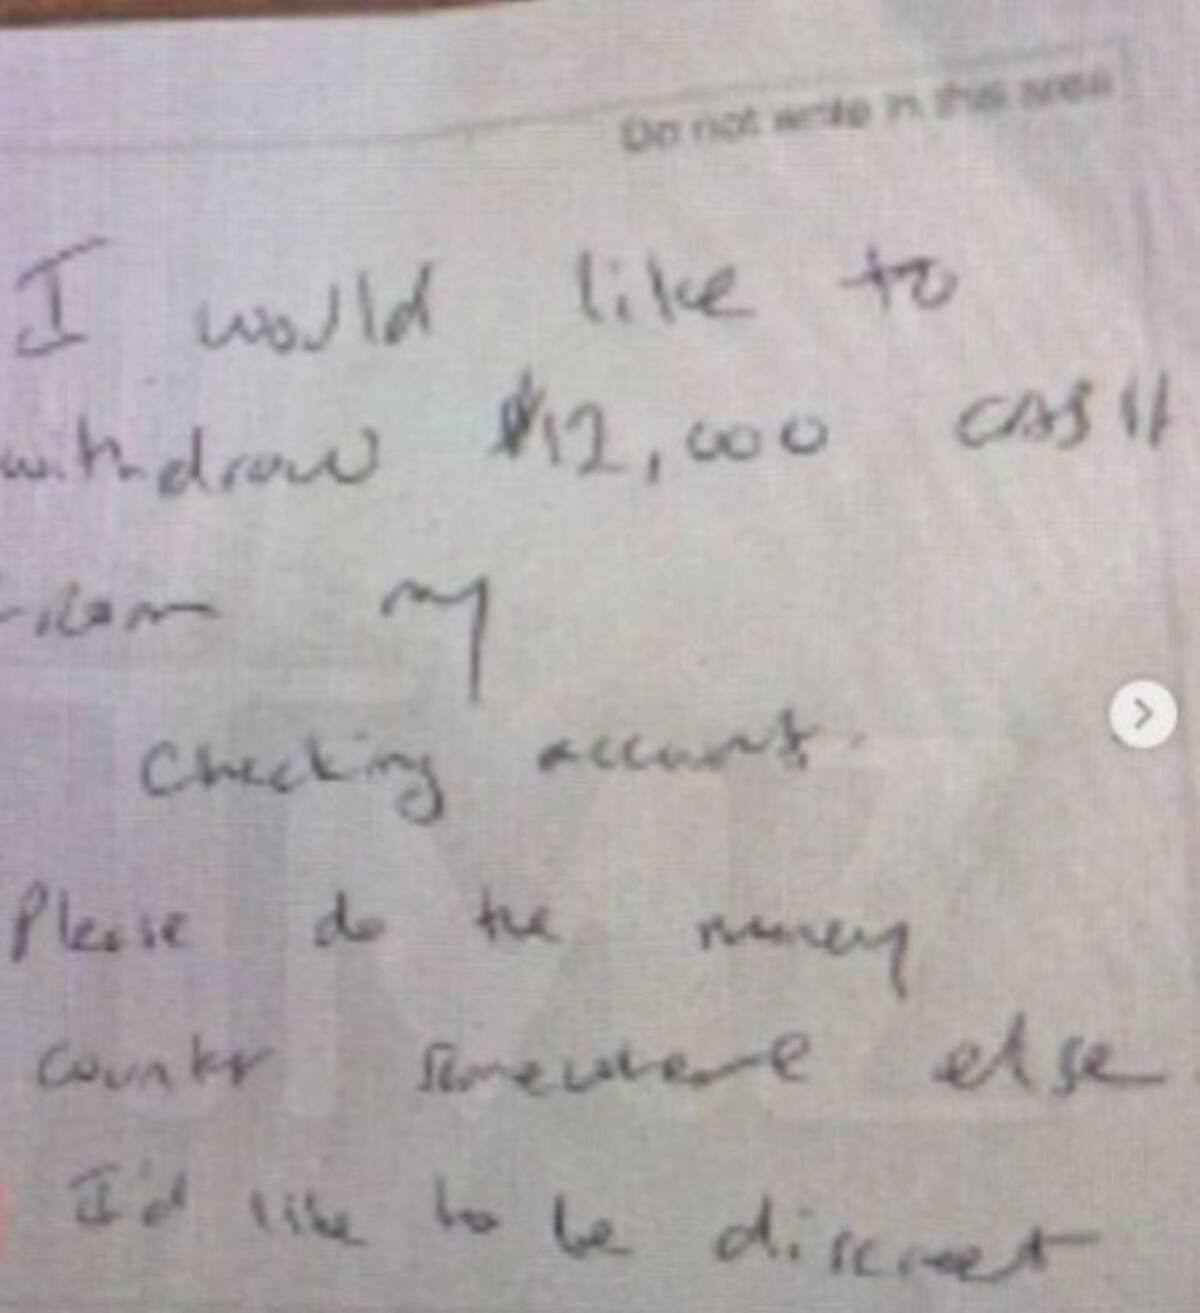 Do not write in this area
I would like to
withdraw $12,000 CASH
from my
Checking account.
Please do the money
counter somewhere else
I'd like to be discreet